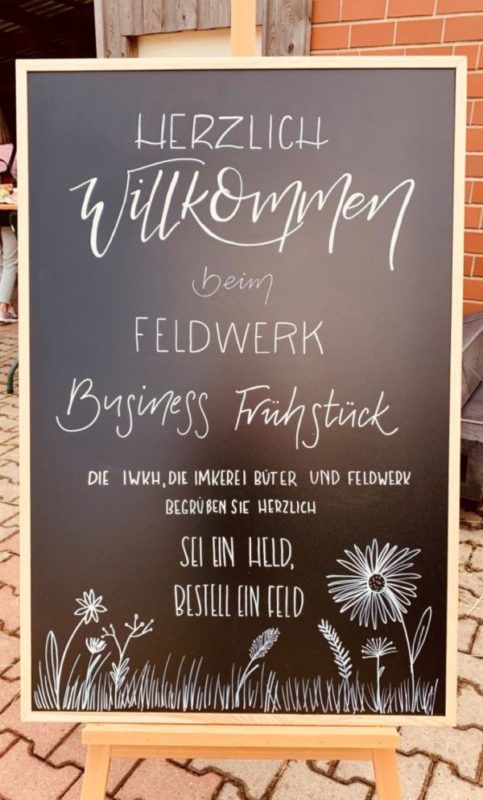 HERZLICH
Willkommen
beim
FELDWERK
Business Frühstück
DIE IWKH, DIE IMKEREI BÜTER UND FELDWERK
BEGRÜßEN SIE HERZLICH
SEI EIN HELD,
BESTELL EIN FELD